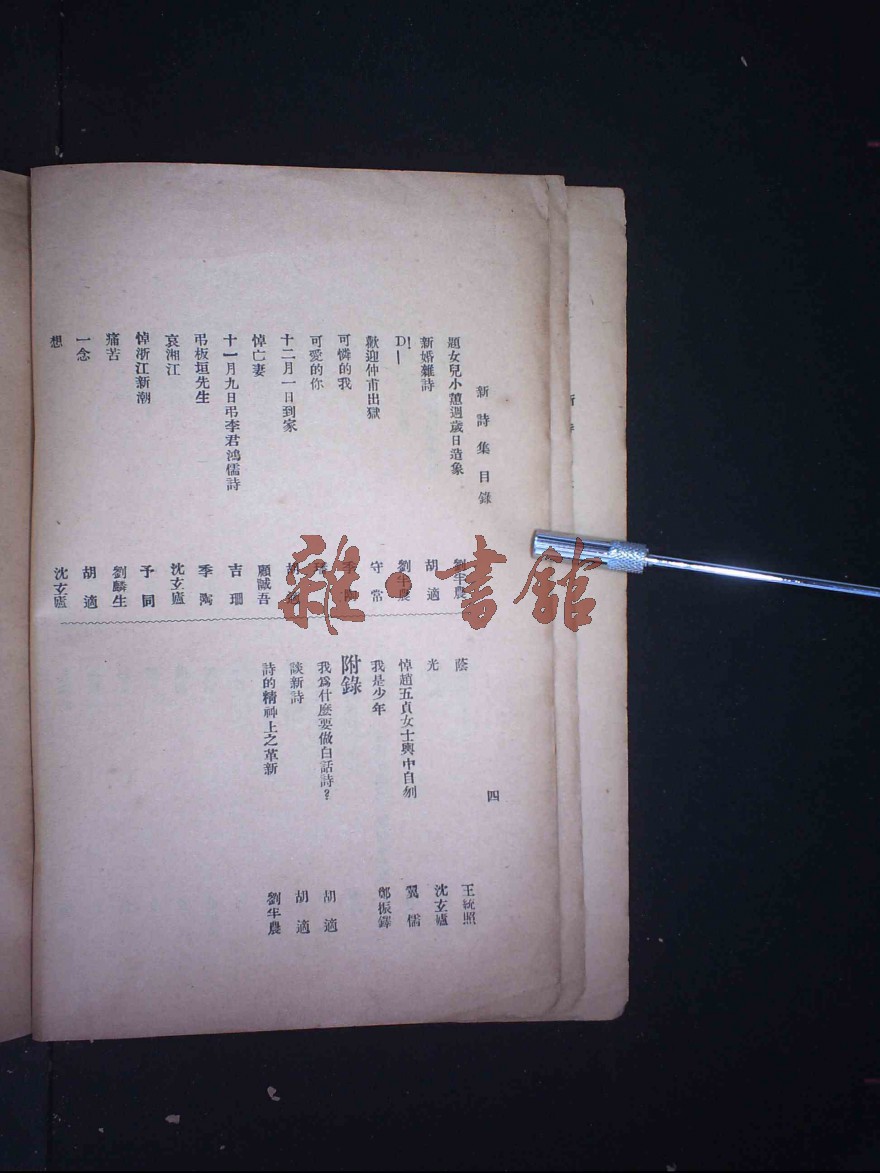 新詩集目錄
四
題女兒小蕙週歲日造象 劉半農
新婚雜詩 胡適
D!—— 劉半農
歡迎仲甫出獄 守常
可憐的我 季陶
可愛的你
十二月一日到家 胡適
悼亡妻 顧誠吾
十一月九日弔李君鴻儒詩 吉珊
弔板垣先生 季陶
哀湘江 沈玄廬
悼浙江新潮 予同
痛苦 劉麟生
一念 胡適
想 沈玄廬
蔭 王統照
光 沈玄廬
悼趙五貞女士輿中自刎 翼儒
我是少年 鄭振鐸
附錄
我爲什麽要做白話詩？ 胡適
談新詩 胡適
詩的精神上之革新 劉半農
雜·書館
新詩